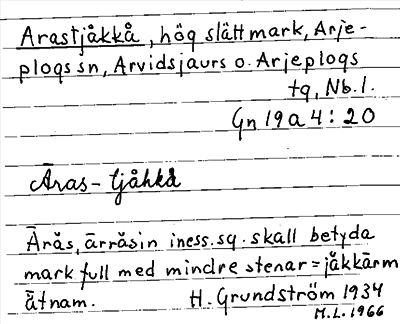 Arastjåkkå, hög slätt mark, Arje-
plogs sn, Arvidsjaurs o. Arjeplogs
tg, Nb.l.
Gn 19a4:20
Āras-tjåhkå
Ārăs, ārrăsin iness. sg. skall betyda
mark full med mindre stenar = jåkkārm
ātnam. H. Grundström 1934
M.L. 1966